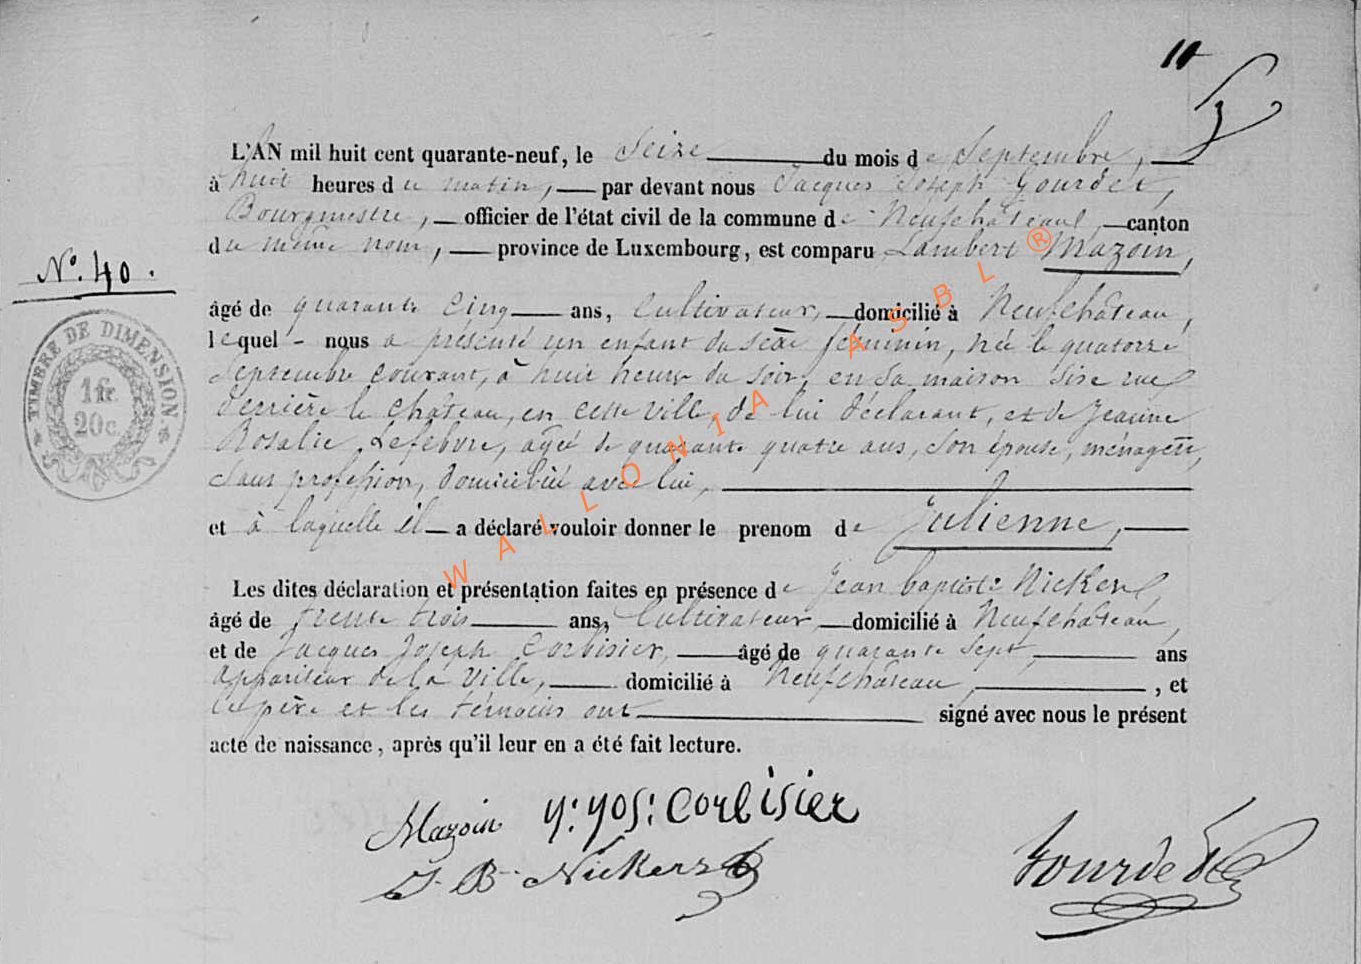 11
L'AN mil huit cent quarante-neuf, le Seize du mois de Septembre,
à huit heures du matin, par devant nous Jacques Joseph Gourdet,
Bourgmestre, officier de l'état civil de la commune de Neufchâteau, canton
du même nom, province de Luxembourg, est comparu Lambert Mazoin,
N°. 40.
âgé de quarante cinq ans, Cultivateur, domicilié à Neufchâteau,
lequel nous a présenté un enfant du sexe féminin, née le quatorze
Septembre courant, à huit heures du soir, en sa maison sise rue
derrière le Château, en cette ville, de lui déclarant, et de Jeanne
Rosalie Lefebvre, agée de quarante quatre ans, son épouse, ménagère,
sans profession, domiciliée avec lui,
et à laquelle il a déclaré vouloir donner le prenom de Julienne,
Les dites déclaration et présentation faites en présence de Jean baptiste Nickers,
âgé de trente trois ans, Cultivateur, domicilié à Neufchâteau,
et de Jacques Joseph Corbisier, âgé de quarante sept, ans
appariteur de la Ville, domicilié à Neufchâteau, , et
le père et les témoins ont signé avec nous le présent
acte de naissance, après qu'il leur en a été fait lecture.
TIMBRE DE DIMENSION
1 fr.
20 c.
WALLONIA ASBL ®
Mazoin
J. Jos. Corbisier
J. B. Nickers
Gourdet